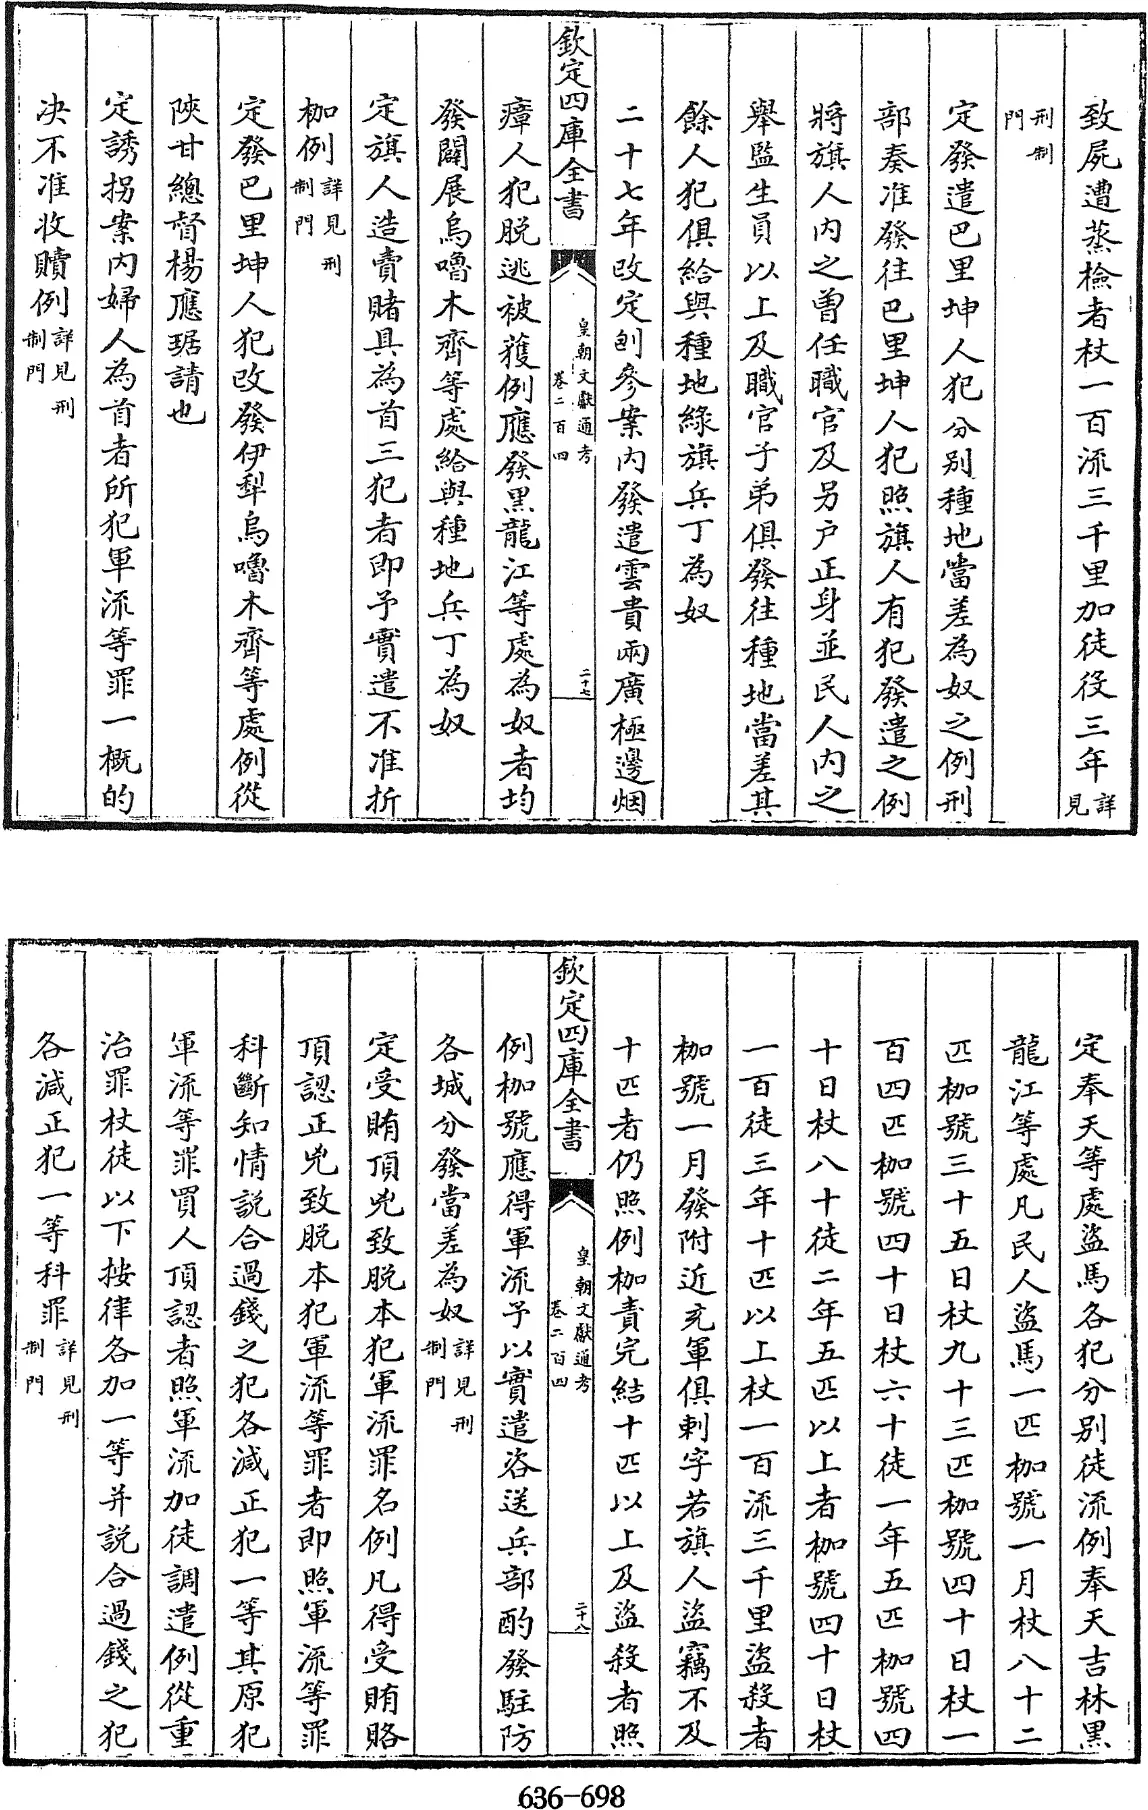 致屍遭蒸檢者杖一百流三千里加徒役三年詳見
刑制門
定發遣巴里坤人犯分別種地當差為奴之例刑
部奏准發往巴里坤人犯照旗人有犯發遣之例
將旗人內之曾任職官及另户正身並民人內之
舉監生員以上及職官子弟俱發往種地當差其
餘人犯俱給與種地綠旗兵丁為奴
二十七年改定刨參案內發遣雲貴兩廣極邊烟
欽定四庫全書
皇朝文獻通考
卷二百四
二十七
瘴人犯脱逃被獲例應發黑龍江等處為奴者均
發闢展烏嚕木齊等處給與種地兵丁為奴
定旗人造賣賭具為首三犯者即予實遣不准折
枷例詳見刑制門
定發巴里坤人犯改發伊犁烏嚕木齊等處例從
陝甘總督楊應琚請也
定誘拐案內婦人為首者所犯軍流等罪一概的
决不准收贖例詳見刑制門
定奉天等處盜馬各犯分別徒流例奉天吉林黑
龍江等處凡民人盜馬一匹枷號一月杖八十二
匹枷號三十五日杖九十三匹枷號四十日杖一
百四匹枷號四十日杖六十徒一年五匹枷號四
十日杖八十徒二年五匹以上者枷號四十日杖
一百徒三年十匹以上杖一百流三千里盜殺者
枷號一月發附近充軍俱刺字若旗人盜竊不及
十匹者仍照例枷責完結十匹以上及盜殺者照
欽定四庫全書
皇朝文獻通考
卷二百四
二十八
例枷號應得軍流予以實遣咨送兵部酌發駐防
各城分發當差為奴詳見刑制門
定受賄頂兇致脱本犯軍流罪名例凡得受賄賂
頂認正兇致脱本犯軍流等罪者即照軍流等罪
科斷知情説合過錢之犯各減正犯一等其原犯
軍流等罪買人頂認者照軍流加徒調遣例從重
治罪杖徒以下按律各加一等并説合過錢之犯
各減正犯一等科罪詳見刑制門
636-698